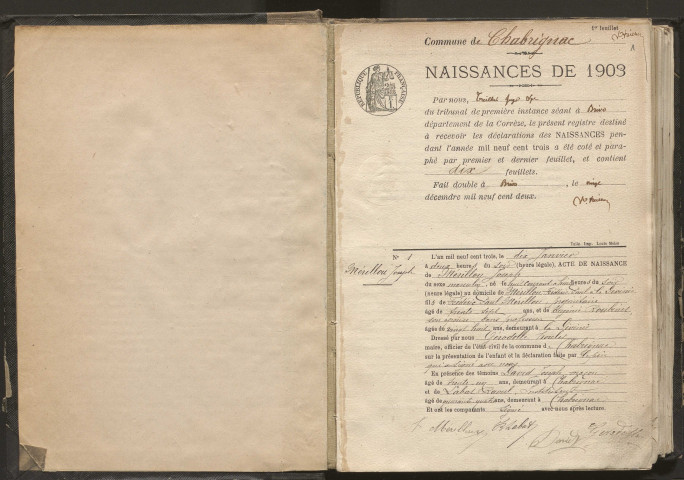 1er feuillet
1
Commune de Chabrignac
RÉPUBLIQUE FRANÇAISE
NAISSANCES DE 1903
Par nous,
du tribunal de première instance séant à Brive
département de la Corrèze, le présent registre destiné
à recevoir les déclarations des NAISSANCES pen-
dant l'année mil neuf cent trois a été coté et para-
phé par premier et dernier feuillet, et contient
dix feuillets.
Fait double à Brive, le vingt
décembre mil neuf cent deux.
Tulle, Imp. Louis
N° 1
Mérillou Joseph
L'an mil neuf cent trois, le dix Janvier
à deux heures du soir (heure légale), ACTE DE NAISSANCE
de Mérillou Joseph
du sexe masculin, né le heures du soir
(heure légale) au domicile de Mérillou
fils de Mérillou, propriétaire
âgé de trente sept ans, et de
son épouse, sans profession
âgée de vingt huit ans, demeurant à
Dressé par nous
maire, officier de l'état-civil de la commune de Chabrignac
sur la présentation de l'enfant et la déclaration faite par le père
En présence des témoins David Joseph, maçon
âgé de trente un ans, demeurant à Chabrignac
et de Labat Daniel, instituteur
âgé de quarante quatre ans, demeurant à Chabrignac
Et ont les comparants signé avec nous après lecture.
Mérillou Labat
David